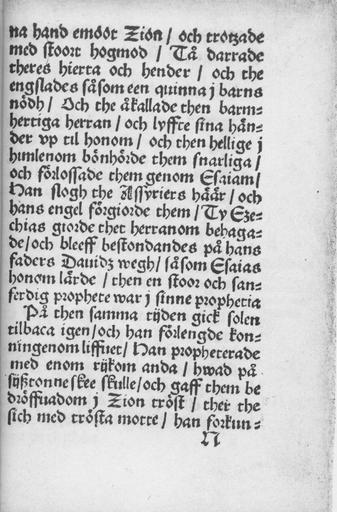 na hand emoot Zion / och trotzade
med stoort hogmod / Tå darrade
theres hierta och hender / och the
engslades såsom een quinna j barns
nödh / Och the åkallade then barm=
hertiga herran / och lyffte sina hån=
der vp til honom / och then hellige j
himlenom bönhörde them snarliga /
och förlossade them genom Esaiam /
Han slogh the Assyriers håår / och
hans engel förgiorde them / Ty Eze=
chias giorde thet herranom behaga=
de / och bleeff bestondandes på hans
faders Dauidz wegh / såsom Esaias
honom lärde / then en stoor och san=
ferdig prophete war j sinne prophetia
På then samma tijden gick solen
tilbaca igen / och han förlengde kon=
ningenom liffuet / Han propheterade
med enom rijkom anda / hwad på
sijstonne skee skulle / och gaff them be
dröffuadom j Zion tröst / ther the
sich med trösta motte / han forkun=
N